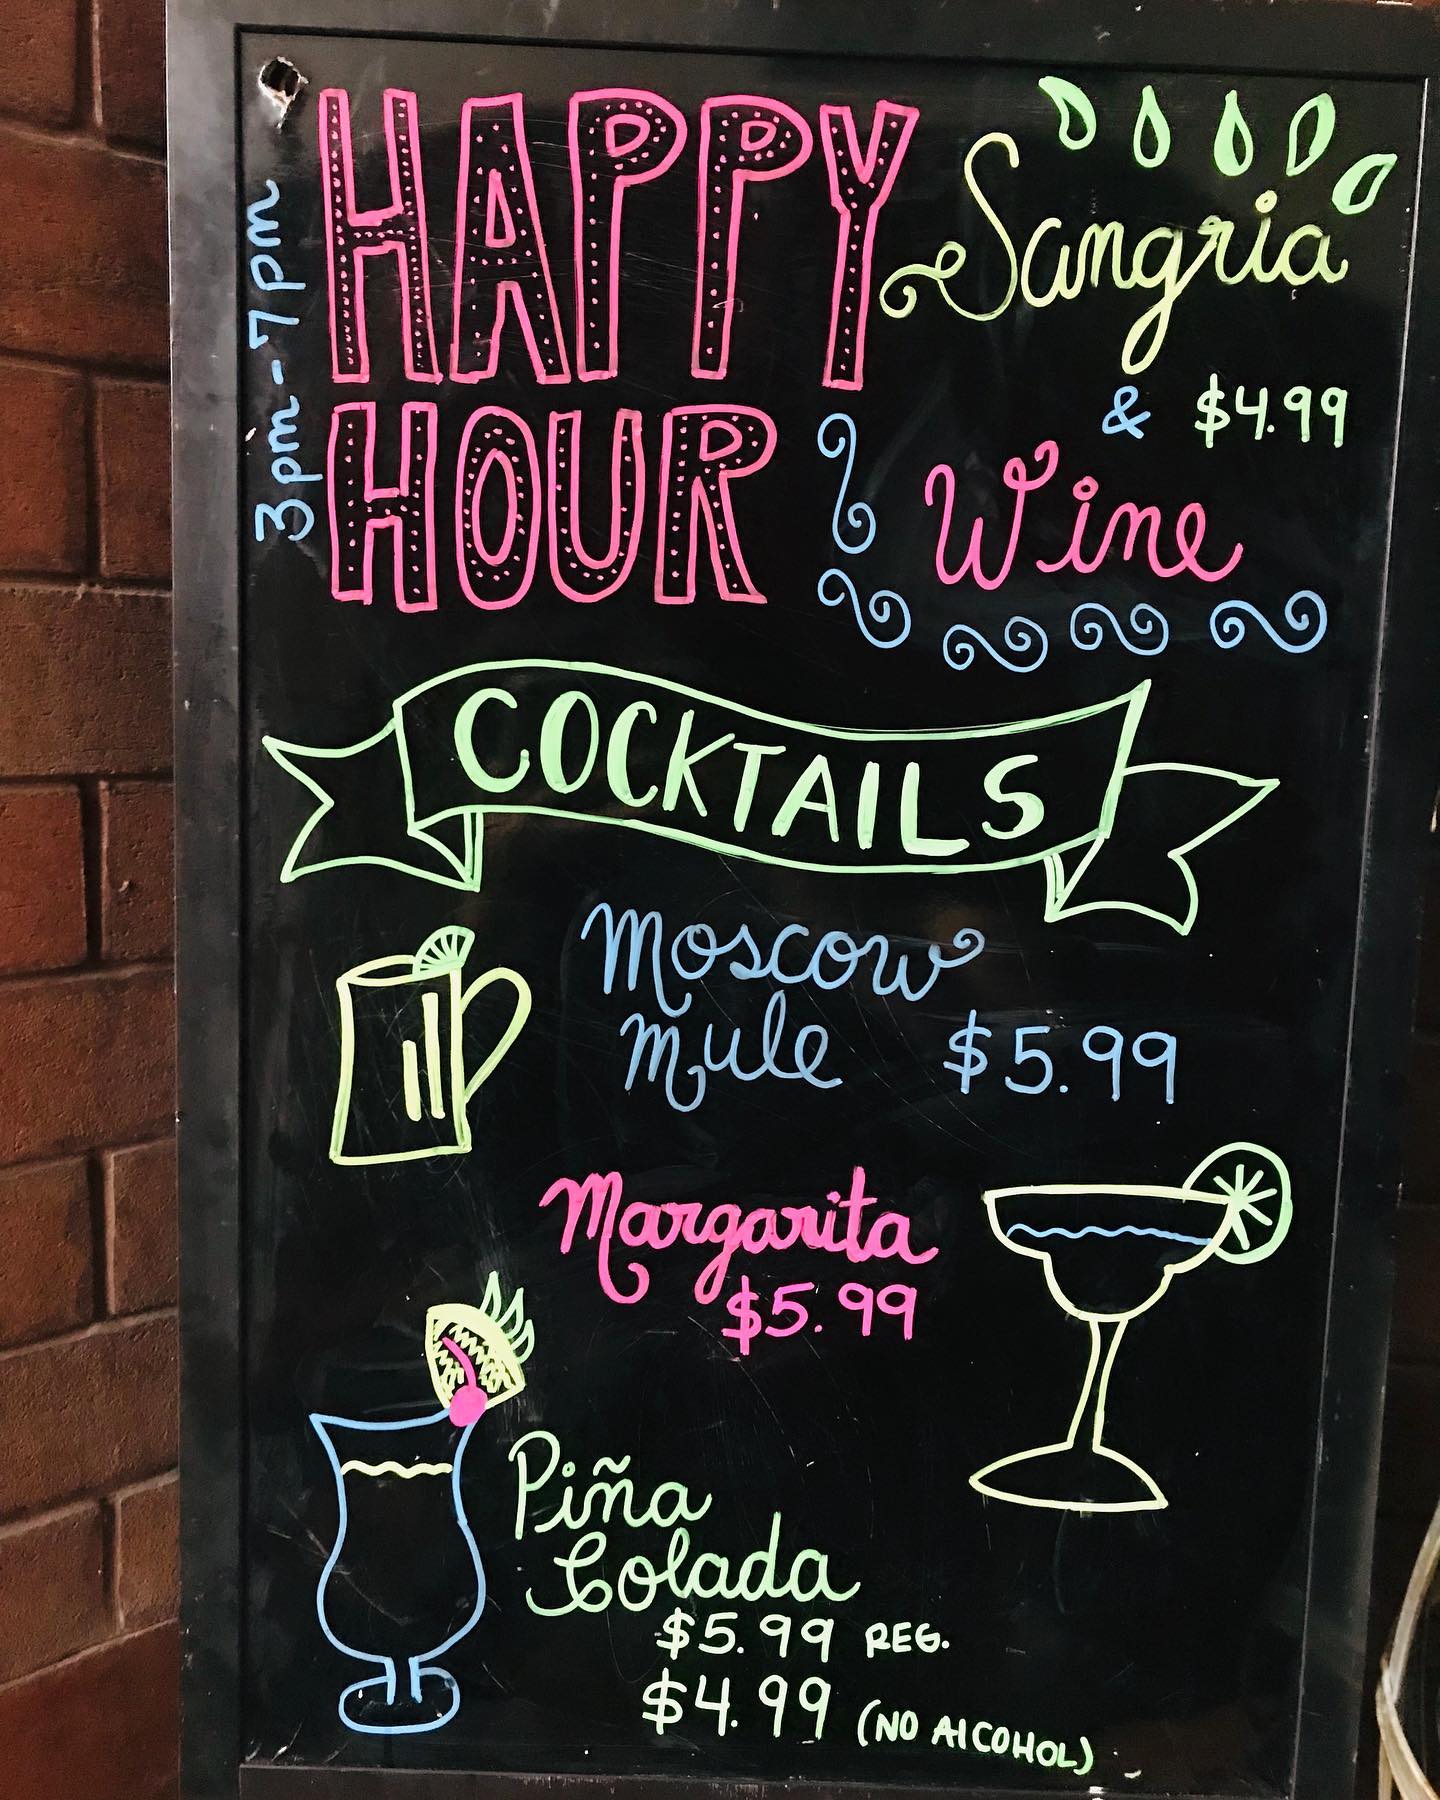 HAPPY
HOUR
3pm-7pm
Sangria
& $4.99
Wine
COCKTAILS
Moscow
Mule $5.99
Margarita
$5.99
Piña
Colada
$5.99 REG.
$4.99 (NO AlCOHOL)